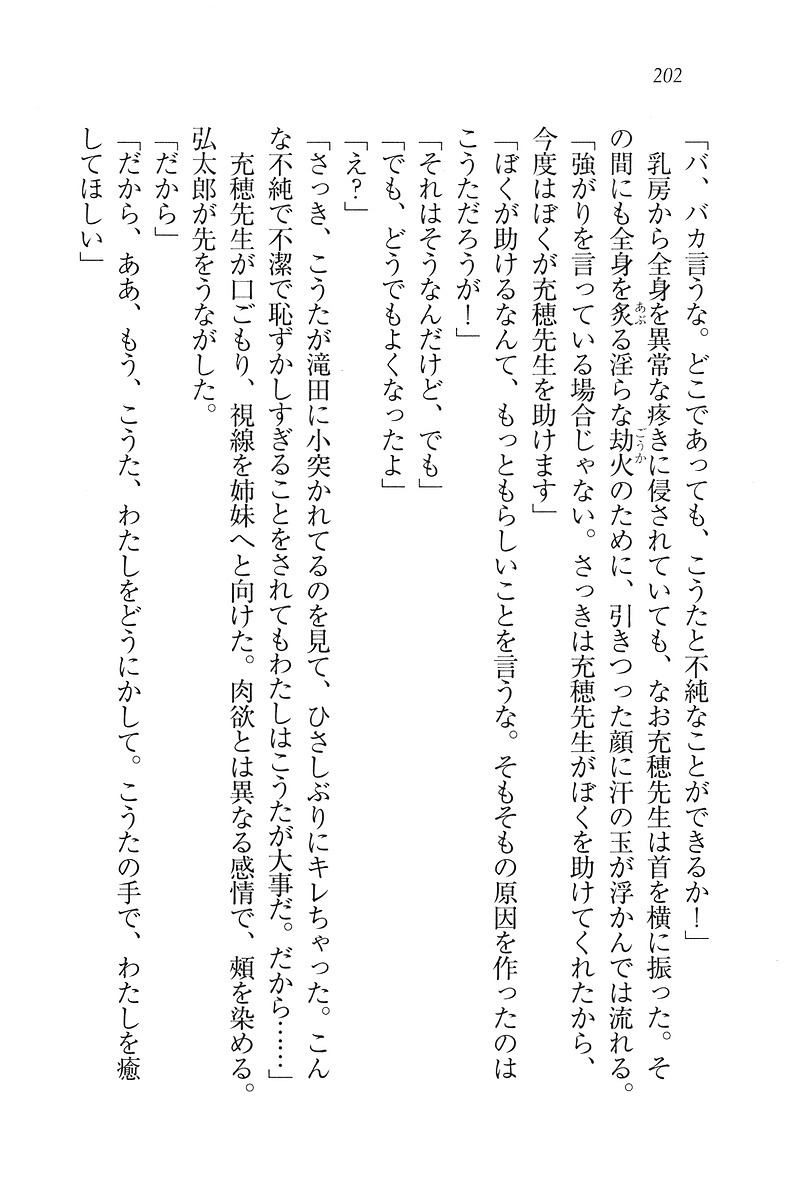 202
「バ、バカ言うな。どこであっても、こうたと不純なことができるか！」
乳房から全身を異常な疼きに侵されていても、なお充穂先生は首を横に振った。そ
の間にも全身を炙る淫らな劫火のために、引きつった顔に汗の玉が浮かんでは流れる。
あぶ
ごうか
「強がりを言っている場合じゃない。さっきは充穂先生がぼくを助けてくれたから、
今度はぼくが充穂先生を助けます」
「ぼくが助けるなんて、もっともらしいことを言うな。そもそもの原因を作ったのは
こうただろうが！」
「それはそうなんだけど、でも」
「でも、どうでもよくなったよ」
「え？」
「さっき、こうたが滝田に小突かれてるのを見て、ひさしぶりにキレちゃった。こん
な不純で不潔で恥ずかしすぎることをされてもわたしはこうたが大事だ。だから……」
充穂先生が口ごもり、視線を姉妹へと向けた。肉欲とは異なる感情で、頰を染める。
弘太郎が先をうながした。
「だから」
「だから、ああ、もう、こうた、わたしをどうにかして。こうたの手で、わたしを癒
してほしい」